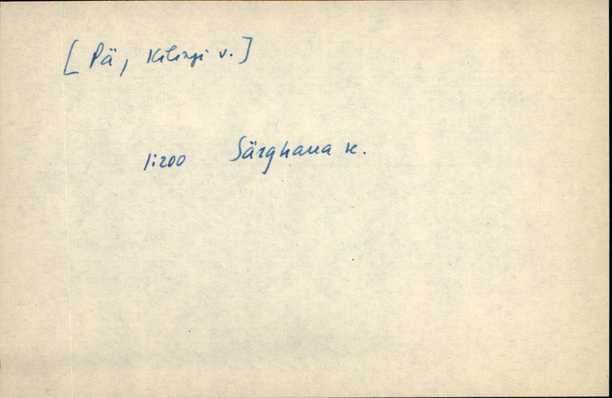 [Pä, Kilingi v.]
1:200 Särghaua k.